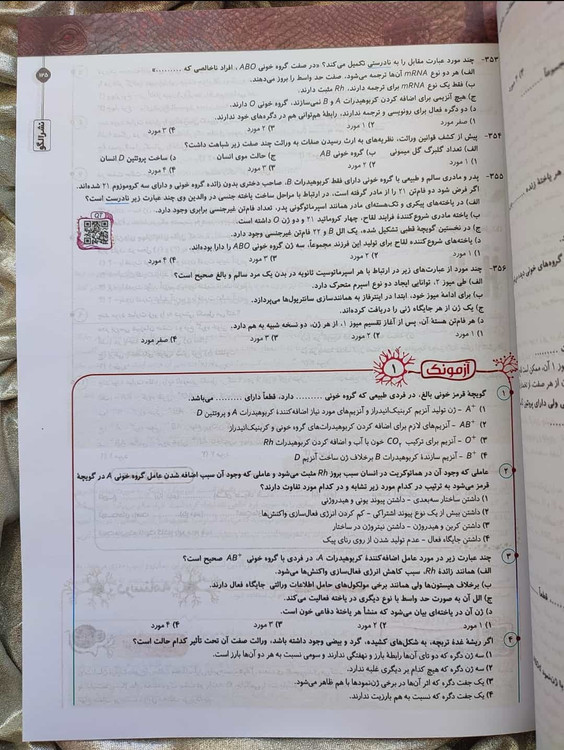 ۱۳۵
نشر الگو
۳۵۳- چند مورد عبارت مقابل را به نادرستی تکمیل می‌کند؟ «در صفت گروه خونی ABO، افراد ناخالصی که ..........»
الف) هر دو نوع mRNA آن‌ها ترجمه می‌شود، صفت حد واسط را بروز می‌دهند.
ب) فقط یک نوع mRNA برای ترجمه دارند، Rh مثبت دارند.
ج) هیچ آنزیمی برای اضافه کردن کربوهیدرات A و B نمی‌سازند، گروه خونی O دارند.
د) دو دگره فعال برای رونویسی و ترجمه ندارند، رابطهٔ هم‌توانی هم در دگره‌های خود ندارند.
۱) صفر مورد ۲) ۱ مورد ۳) ۲ مورد ۴) ۳ مورد
۳۵۴- پیش از کشف قوانین وراثت، نظریه‌های به ارث رسیدن صفات به وراثت چند صفت زیر شباهت داشت؟
الف) تعداد گلبرگ گل میمونی ب) گروه خونی AB ج) حالت موی انسان د) ساخت پروتئین D انسان
۱) ۱ مورد ۲) ۲ مورد ۳) ۳ مورد ۴) ۴ مورد
۳۵۵- پدر و مادری سالم و طبیعی با گروه خونی دارای فقط کربوهیدرات B، صاحب دختری بدون زائده گروه خونی و دارای سه کروموزوم ۲۱ شده‌اند.
اگر فرض شود دو فام‌تن ۲۱ را از مادر گرفته است، در ارتباط با مراحل ساخت یاخته جنسی در والدین وی چند عبارت زیر نادرست است؟
الف) در یاخته‌های پیکری و تک‌هسته‌ای مادر همانند اسپرماتوگونی پدر، تعداد فام‌تن غیرجنسی برابری وجود دارد.
ب) یاخته مادری شروع‌کنندهٔ فرایند لقاح، چهار کروماتید ۲۱ و دو ژن O داشته است.
ج) در نخستین گویچهٔ قطبی تشکیل شده، یک الل B و ۲۲ فام‌تن غیرجنسی وجود دارد.
د) یاخته‌های شروع‌کننده لقاح برای تولید این فرزند مجموعاً، سه ژن گروه خونی ABO را دارا بوده‌اند.
۱) ۱ مورد ۲) ۲ مورد ۳) ۳ مورد ۴) ۴ مورد
۳۵۶- چند مورد از عبارت‌های زیر در ارتباط با هر اسپرماتوسیت ثانویه در بدن یک مرد سالم و بالغ صحیح است؟
الف) طی میوز ۲، توانایی ایجاد دو نوع اسپرم متحرک دارد.
ب) برای ادامهٔ میوز خود، ابتدا در اینترفاز به همانندسازی سانتریول‌ها می‌پردازد.
ج) یک ژن از هر جایگاه ژنی را دریافت کرده‌اند.
د) هر فام‌تن هستهٔ آن، پس از آغاز تقسیم میوز ۱، از هر ژن، دو نسخه شبیه به هم دارد.
۱) ۱ مورد ۲) ۲ مورد ۳) ۳ مورد ۴) صفر مورد
آزمونک ۱
۱ گویچهٔ قرمز خونی بالغ، در فردی طبیعی که گروه خونی .......... دارد، قطعاً دارای .......... می‌باشد.
۱) A⁺ - ژن تولید آنزیم کربنیک‌انیدراز و آنزیم‌های مورد نیاز اضافه‌کنندهٔ کربوهیدرات A و پروتئین D
۲) AB⁺ - آنزیم‌های لازم برای اضافه کردن کربوهیدرات‌های گروه خونی و کربنیک‌انیدراز
۳) O⁺ - آنزیم برای ترکیب CO₂ خون با آب و اضافه کردن کربوهیدرات Rh
۴) B⁺ - آنزیم سازندهٔ کربوهیدرات B برخلاف ژن ساخت آنزیم D
۲ عاملی که وجود آن در هماتوکریت در انسان سبب بروز Rh مثبت می‌شود و عاملی که وجود آن سبب اضافه شدن عامل گروه خونی A در گویچهٔ
قرمز می‌شود به ترتیب در کدام مورد زیر تشابه و در کدام مورد تفاوت دارند؟
۱) داشتن ساختار سه‌بعدی - داشتن پیوند یونی و هیدروژنی
۲) داشتن بیش از یک نوع پیوند اشتراکی - کم کردن انرژی فعال‌سازی واکنش‌ها
۳) داشتن کربن و هیدروژن - داشتن نیتروژن در ساختار
۴) داشتن جایگاه فعال - عدم تولید شدن از روی رنای پیک
۳ چند عبارت زیر در مورد عامل اضافه‌کنندهٔ کربوهیدرات A، در فردی با گروه خونی AB⁺ صحیح است؟
الف) همانند زائدهٔ Rh، سبب کاهش انرژی فعال‌سازی واکنش‌ها می‌شود.
ب) برخلاف هیستون‌ها ولی همانند برخی مولکول‌های حامل اطلاعات وراثتی جایگاه فعال دارند.
ج) الل آن به صورت حد واسط با نوع دیگری در یاخته فعالیت می‌کند.
د) ژن آن در یاخته‌ای بیان می‌شود که منشأ هر یاختهٔ دفاعی خون است.
۱) ۱ مورد ۲) ۲ مورد ۳) ۳ مورد ۴) ۴ مورد
۴ اگر ریشهٔ غدهٔ تربچه، به شکل‌های کشیده، گرد و بیضی وجود داشته باشد، وراثت صفت آن تحت تأثیر کدام حالت است؟
۱) سه ژن دگره که دو تای آن‌ها رابطهٔ بارز و نهفتگی ندارند و سومی نسبت به هر دو آن‌ها بارز است.
۲) سه ژن دگره که هیچ کدام بر دیگری غلبه ندارد.
۳) یک جفت دگره که اثر آن‌ها در برخی ژن‌نمودها با هم ظاهر می‌شود.
۴) یک جفت دگره که نسبت به هم بارزیت ندارند.